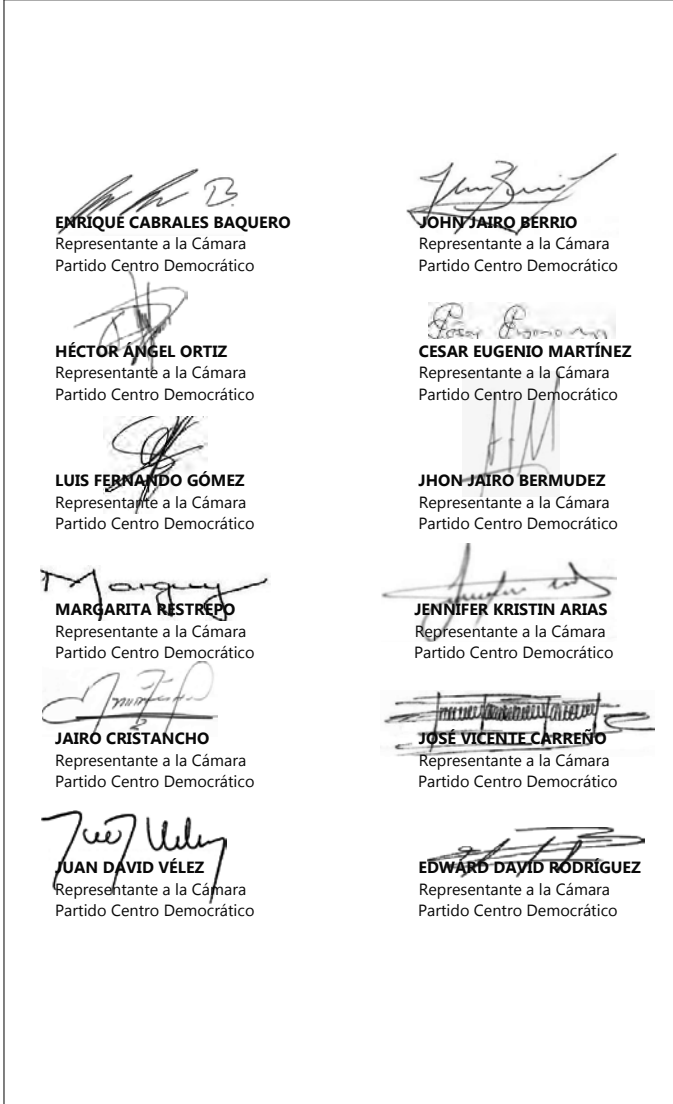 ENRIQUE CABRALES BAQUERO
Representante a la Cámara
Partido Centro Democrático
JOHN JAIRO BERRIO
Representante a la Cámara
Partido Centro Democrático
HÉCTOR ÁNGEL ORTIZ
Representante a la Cámara
Partido Centro Democrático
CESAR EUGENIO MARTÍNEZ
Representante a la Cámara
Partido Centro Democrático
LUIS FERNANDO GÓMEZ
Representante a la Cámara
Partido Centro Democrático
JHON JAIRO BERMUDEZ
Representante a la Cámara
Partido Centro Democrático
MARGARITA RESTREPO
Representante a la Cámara
Partido Centro Democrático
JENNIFER KRISTIN ARIAS
Representante a la Cámara
Partido Centro Democrático
JAIRO CRISTANCHO
Representante a la Cámara
Partido Centro Democrático
JOSÉ VICENTE CARREÑO
Representante a la Cámara
Partido Centro Democrático
JUAN DAVID VÉLEZ
Representante a la Cámara
Partido Centro Democrático
EDWARD DAVID RODRÍGUEZ
Representante a la Cámara
Partido Centro Democrático